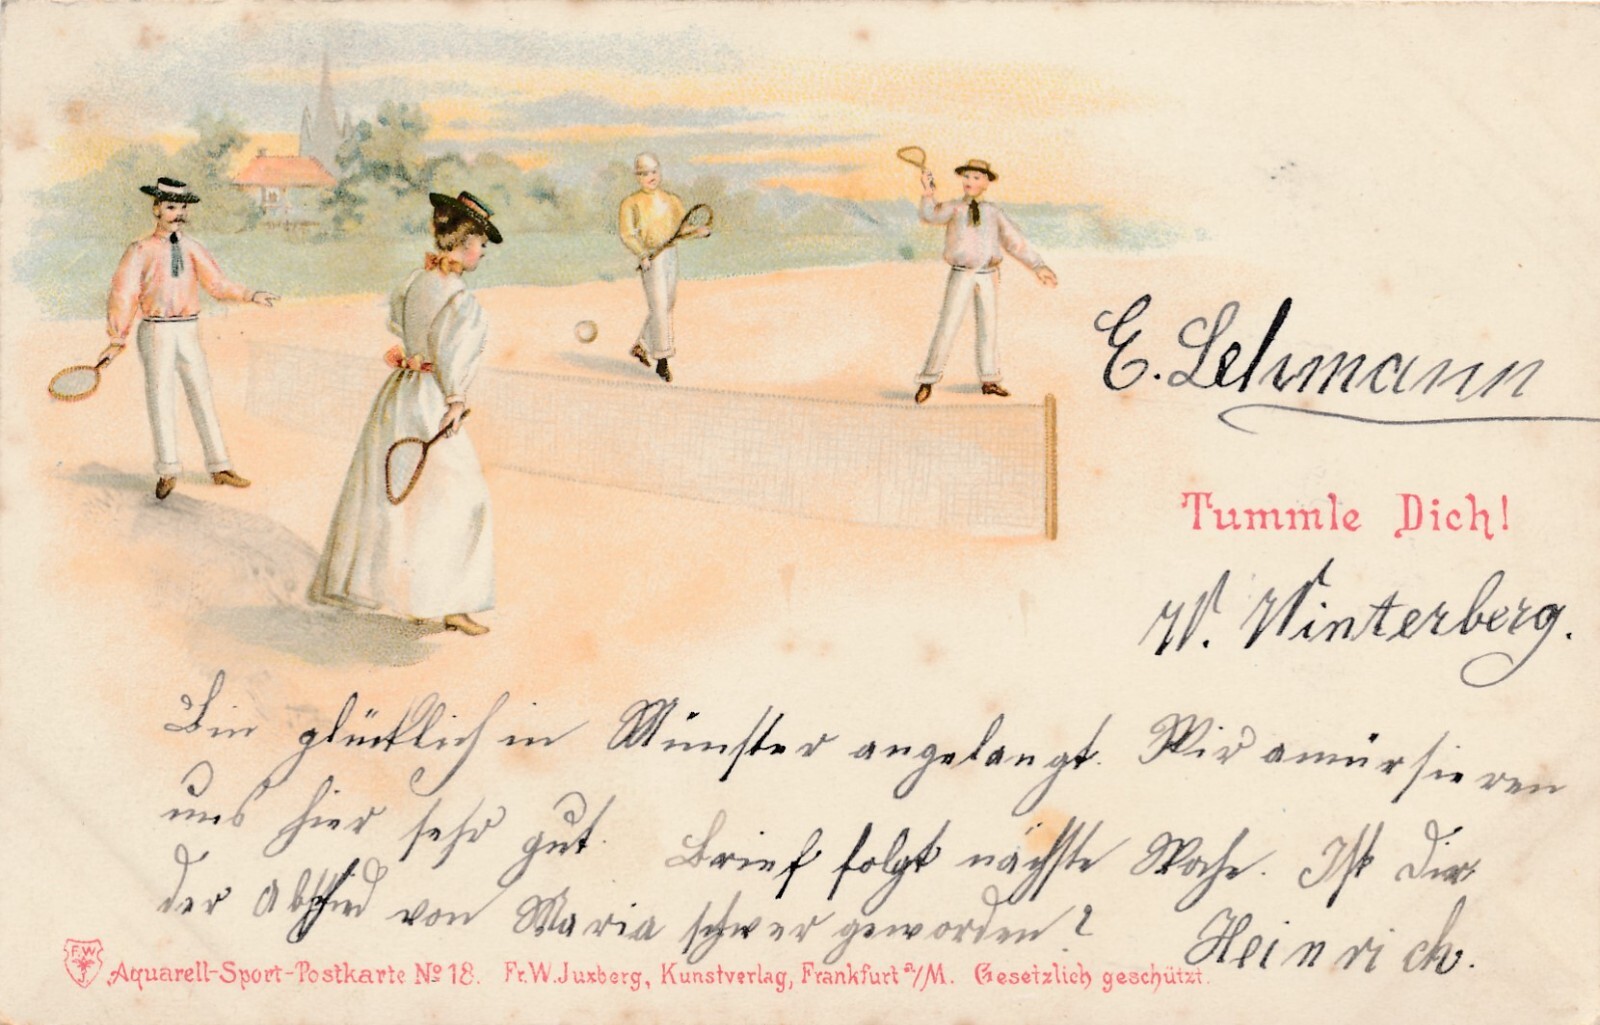 E. Lehmann
Tummle Dich!
W. Winterberg.
Bin glücklich in Münster angelangt. Wir amürsieren
uns hier sehr gut. Brief folgt nächste Woche. Ist Dir
der Abschied von Maria schwer geworden?
Heinrich.
F.W.
J.
Aquarell-Sport-Postkarte No 18. Fr. W. Juxberg, Kunstverlag, Frankfurt a/M. Gesetzlich geschützt.